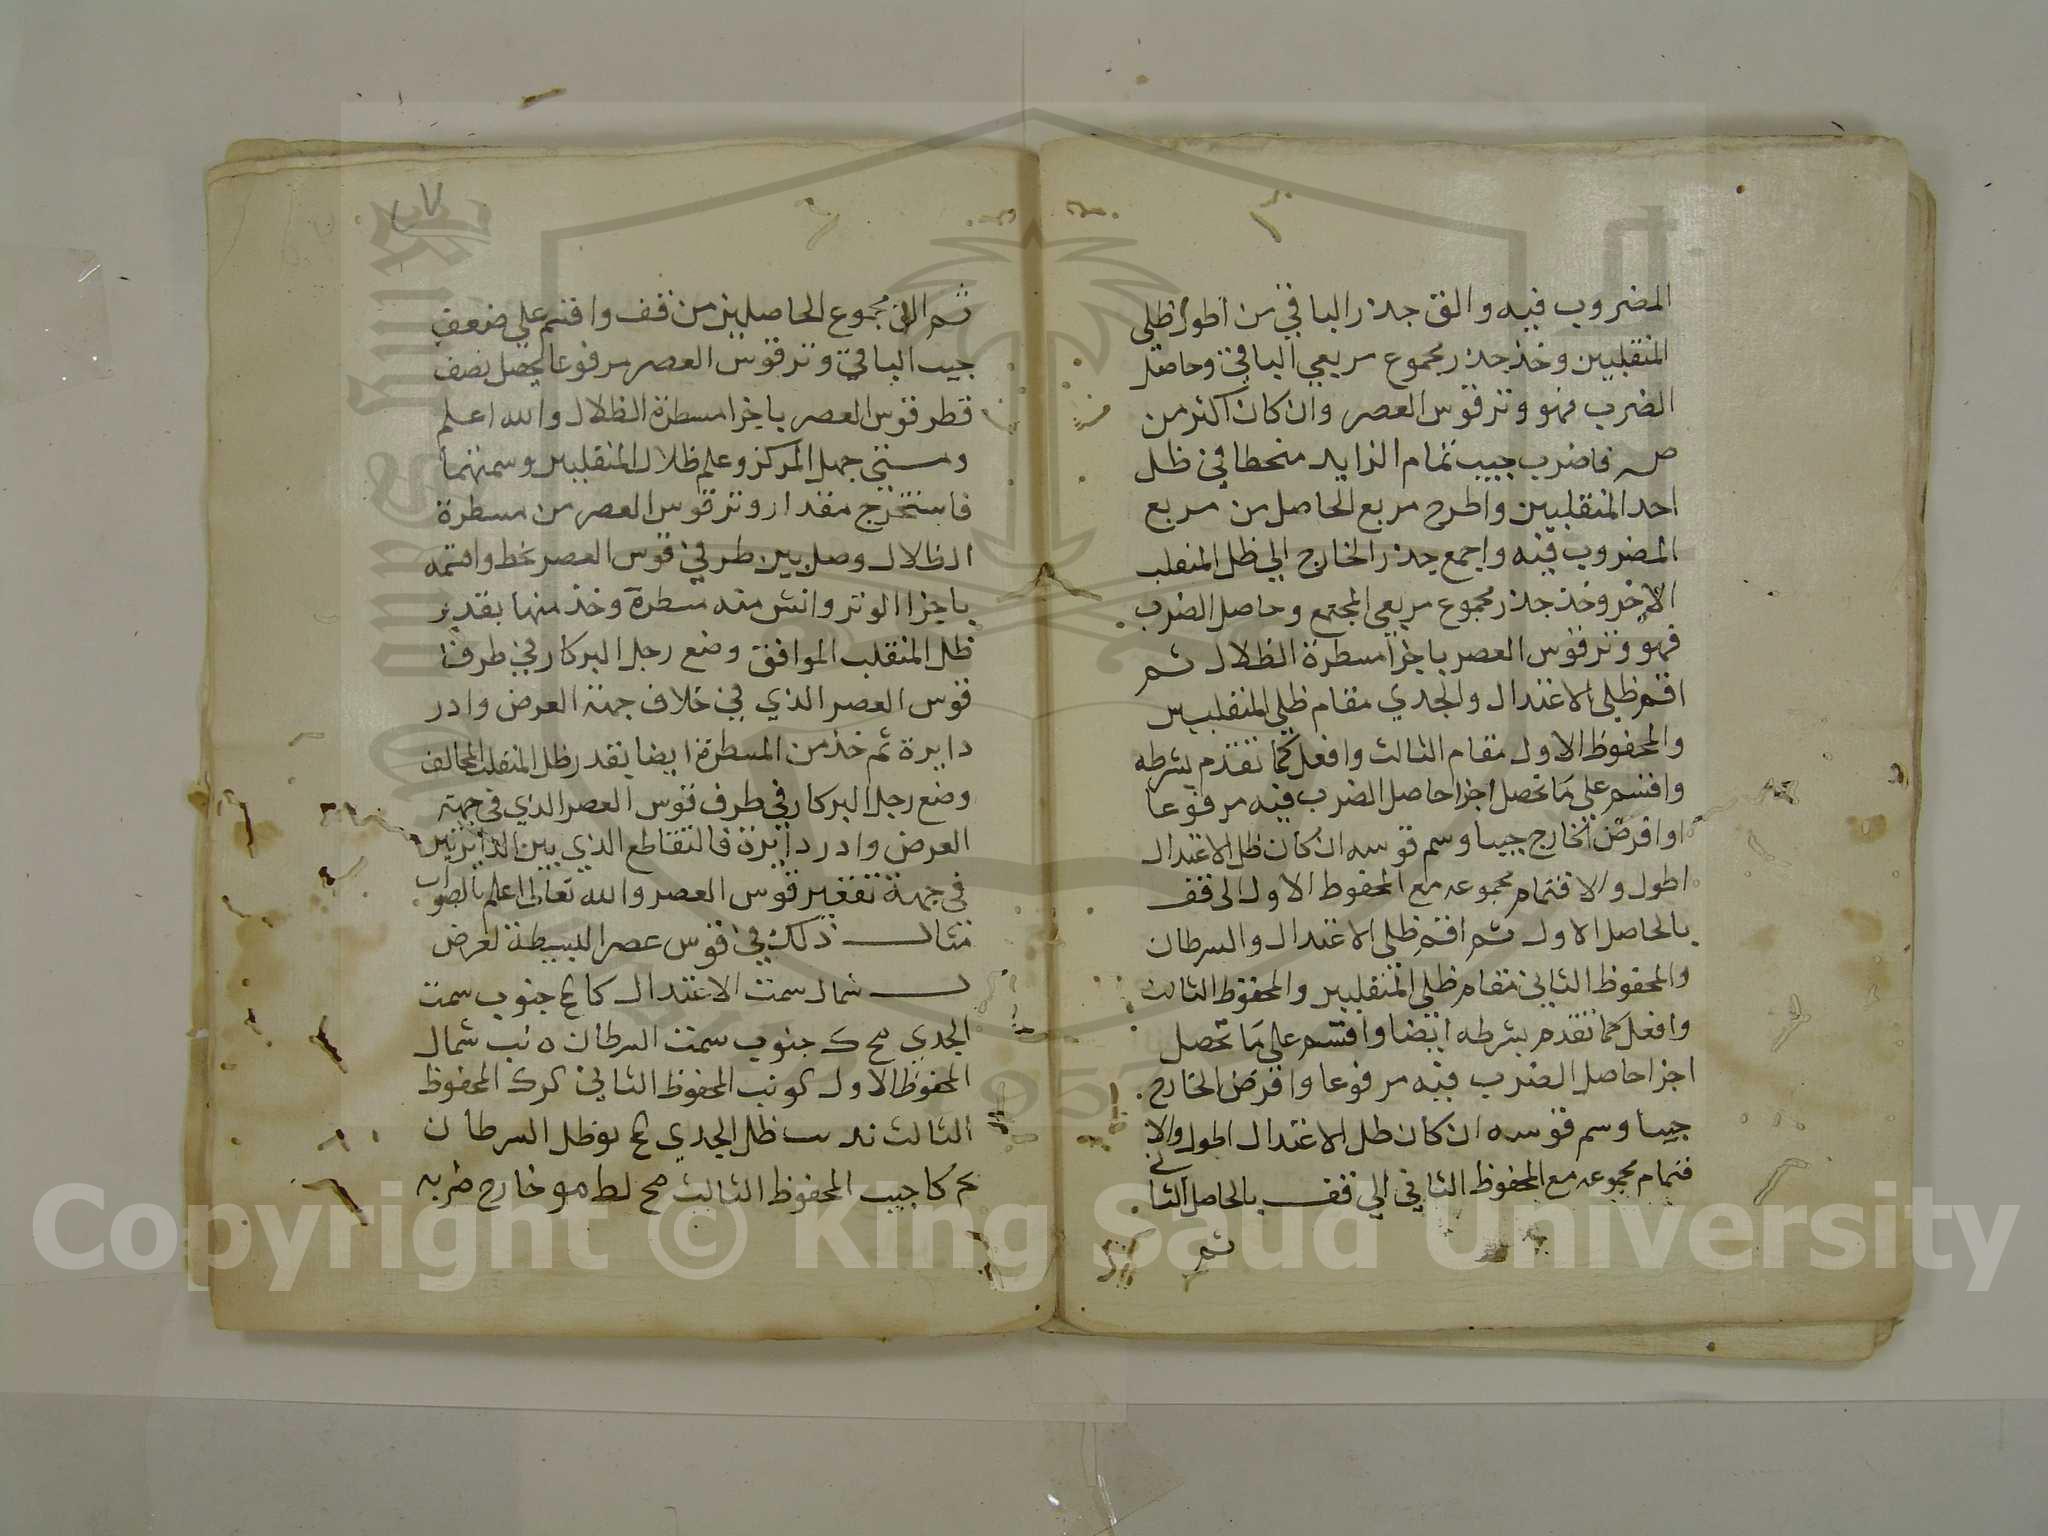 المضروب فيه والق جذر الباقي من اطول ظلي
المنقلبين وخذ جذر مجموع مربعي الباقي وحاصل
الضرب فهو وتر قوس العصر وان كان اكثر من
ص فاضرب جيب تمام الزايد منحطا في ظل
احد المنقلبين واطرح مربع الحاصل من مربع
المضروب فيه واجمع جذر الخارج الي ظل المنقلب
الاخر وخذ جذر مجموع مربعي المجتمع وحاصل الضرب
فهو وتر قوس العصر باجزا مسطرة الظلال ثم
اقم ظلي الاعتدال والجدي مقام ظلي المنقلبين
والمحفوظ الاول مقام الثالث وافعل كما تقدم بشرطه
واقسم علي ما تحصل اجزا حاصل الضرب فيه مرفوعا
وافرض الخارج جيبا وسم قوسه ان كان ظل الاعتدال
اطول والا فتمام مجموعه مع المحفوظ الاول الى قف
بالحاصل الاول ثم اقم ظلي الاعتدال والسرطان
والمحفوظ الثاني مقام ظلي المنقلبين والمحفوظ الثالث
وافعل كما تقدم بشرطه ايضا واقسم علي ما تحصل
اجزا حاصل الضرب فيه مرفوعا وافرض الخارج
جيبا وسم قوسه ان كان ظل الاعتدال اطول والا
فتمام مجموعه مع المحفوظ الثاني الي قف بالحاصل الثاني
ثم
٧
ثم الق مجموع الحاصلين من قف واقسم علي ضعف
جيب الباقي وتر قوس العصر مرفوعا يحصل نصف
قطر قوس العصر باجزا مسطرة الظلال والله اعلم
ومتي جهل المركز وعلم ظلال المنقلبين وسمتهما
فاستخرج مقدار وتر قوس العصر من مسطرة
الظلال وصل بين طرفي قوس العصر بخط واقسمه
باجزا الوتر وانش منه مسطرة وخذ منها بقدر
ظل المنقلب الموافق وضع رجل البركار في طرف
قوس العصر الذي في خلاف جهة العرض وادر
دايرة ثم خذ من المسطرة ايضا بقدر ظل المنقلب المخالف
وضع رجل البركار في طرف قوس العصر الذي في جهة
العرض وادر دائرة فالتقاطع الذي بين الدائرتين
في جهة تقعير قوس العصر والله تعالى اعلم بالصواب
مثال ذلك في قوس عصر البسيطة لعرض
ل شمال سمت الاعتدال كا جنوب سمت
الجدي مح ك جنوب سمت السرطان ه نب شمال
المحفوظ الاول نب المحفوظ الثاني المحفوظ
الثالث ظل الجدي ظل السرطان
كا جيب المحفوظ الثالث مح لط مو خارج ضربه